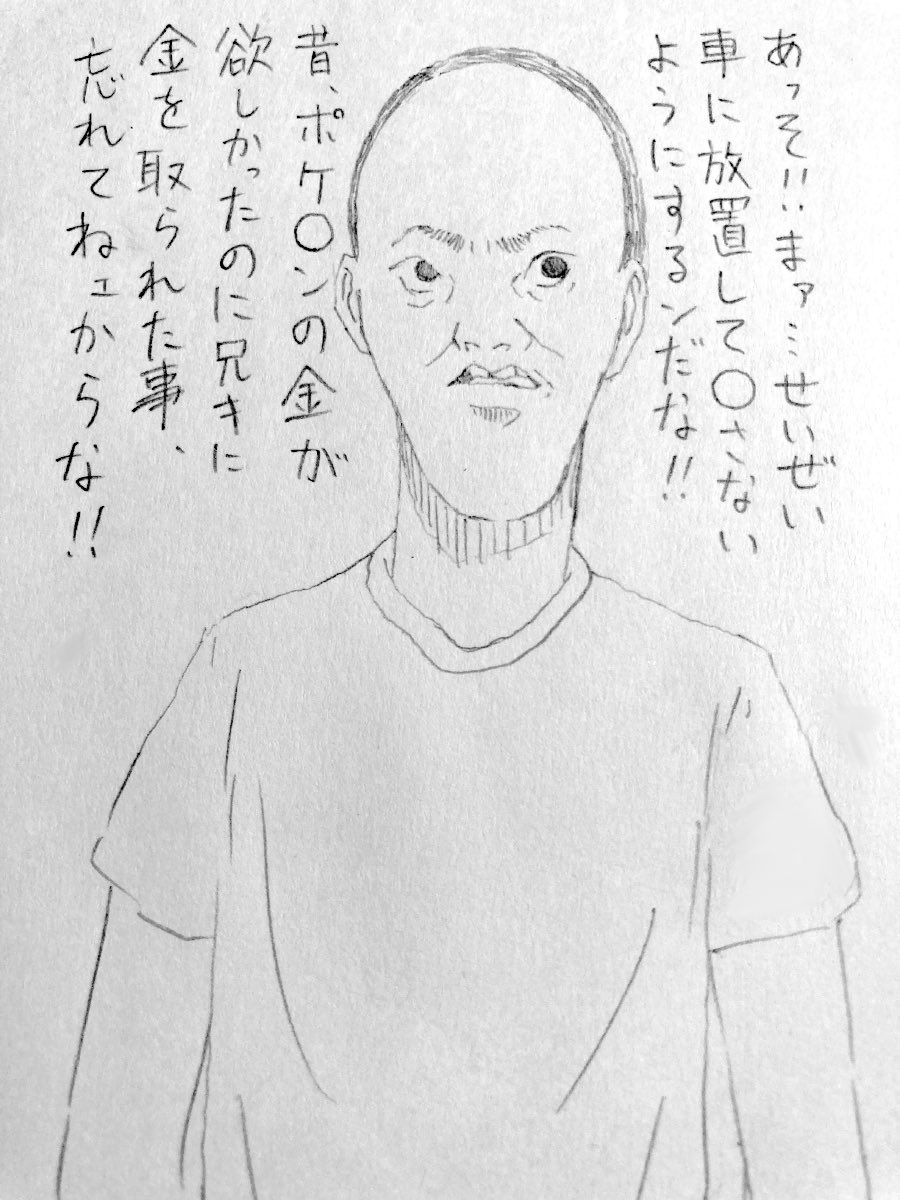 あっそ!!まァ…せいぜい
車に放置して〇さない
ようにするンだな!!
昔、ポケ〇ンの金が
欲しかったのに兄キに
金を取られた事、
忘れてねェからな!!